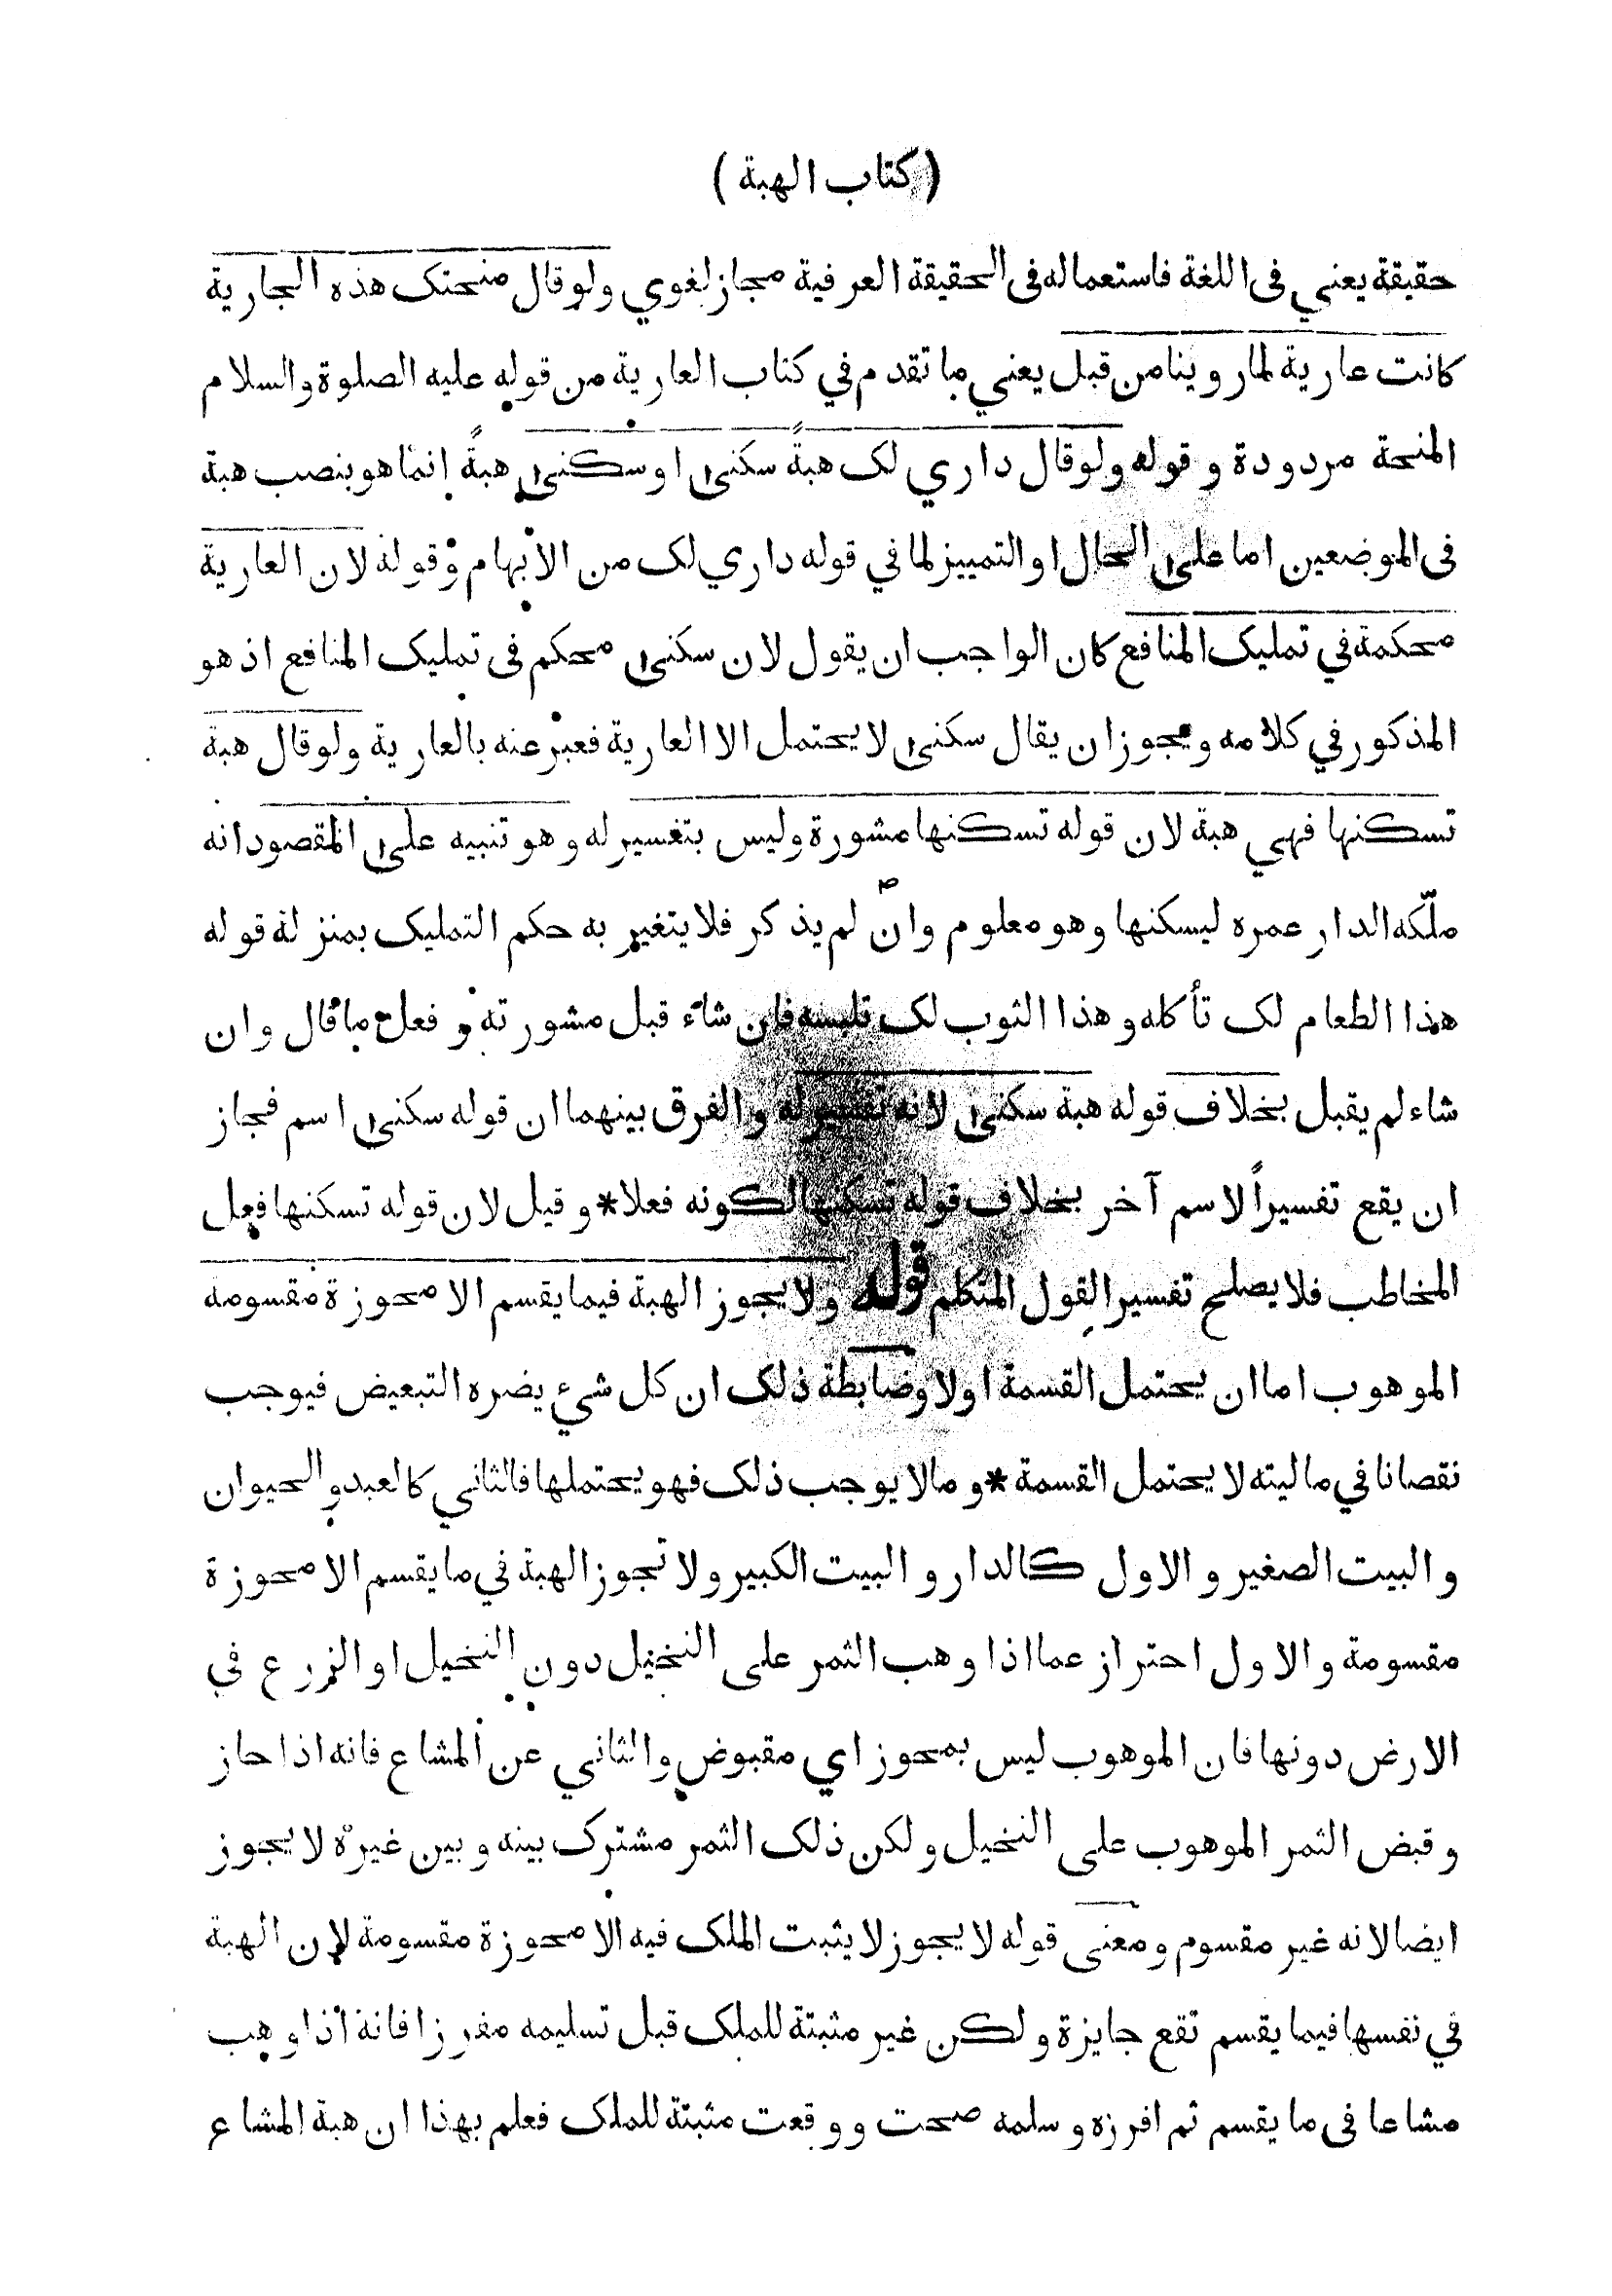 ( كتاب الهبة )
حقيقة يعني في اللغة فاستعماله في الحقيقة العرفية مجاز لغوي ولو قال منحتك هذه الجارية
كانت عارية لما روينا من قبل يعني ما تقدم في كتاب العارية من قوله عليه الصلوة والسلام
المنحة مردودة وقوله ولو قال داري لك هبةً سكنى او سكنى هبةً انما هو بنصب هبة
في الموضعين اما على الحال او التمييز لما في قوله داري لك من الابهام وقوله لان العارية
محكمة في تمليك المنافع كان الواجب ان يقول لان سكنى محكم في تمليك المنافع اذ هو
المذكور في كلامه ويجوز ان يقال سكنى لا يحتمل الا العارية فعبر عنه بالعارية ولو قال هبة
تسكنها فهي هبة لان قوله تسكنها مشورة وليس بتفسير له وهو تنبيه على المقصود انه
ملّكه الدار عمره ليسكنها وهو معلوم وان لم يذكر فلا يتغير به حكم التمليك بمنزلة قوله
هذا الطعام لك تأكله وهذا الثوب لك تلبسه فان شاء قبل مشورته و فعل ما قال وان
شاء لم يقبل بخلاف قوله هبة سكنى لانه تفسير له والفرق بينهما ان قوله سكنى اسم فجاز
ان يقع تفسيراً لاسم آخر بخلاف قوله تسكنها لكونه فعلا * وقيل لان قوله تسكنها فعل
المخاطب فلا يصلح تفسير القول المتكلم قوله ولا يجوز الهبة فيما يقسم الا محوزة مقسومه
الموهوب اما ان يحتمل القسمة اولا وضابطة ذلك ان كل شيء يضره التبعيض فيوجب
نقصانا في ماليته لا يحتمل القسمة * وما لا يوجب ذلك فهو يحتملها فالثاني كالعبد والحيوان
والبيت الصغير والاول كالدار والبيت الكبير ولا تجوز الهبة في ما يقسم الا محوزة
مقسومة والاول احتراز عما اذا وهب الثمر على النخيل دون النخيل او الزرع في
الارض دونها فان الموهوب ليس بمحوز اي مقبوض والثاني عن المشاع فانه اذا حاز
وقبض الثمر الموهوب على النخيل ولكن ذلك الثمر مشترك بينه وبين غيره لا يجوز
ايضا لانه غير مقسوم ومعنى قوله لا يجوز لا يثبت الملك فيه الا محوزة مقسومة لان الهبة
في نفسها فيما يقسم تقع جايزة ولكن غير مثبتة للملك قبل تسليمه مفرزا فانه اذا وهب
مشاعا في ما يقسم ثم افرزه وسلمه صحت ووقعت مثبتة للملك فعلم بهذا ان هبة المشاع